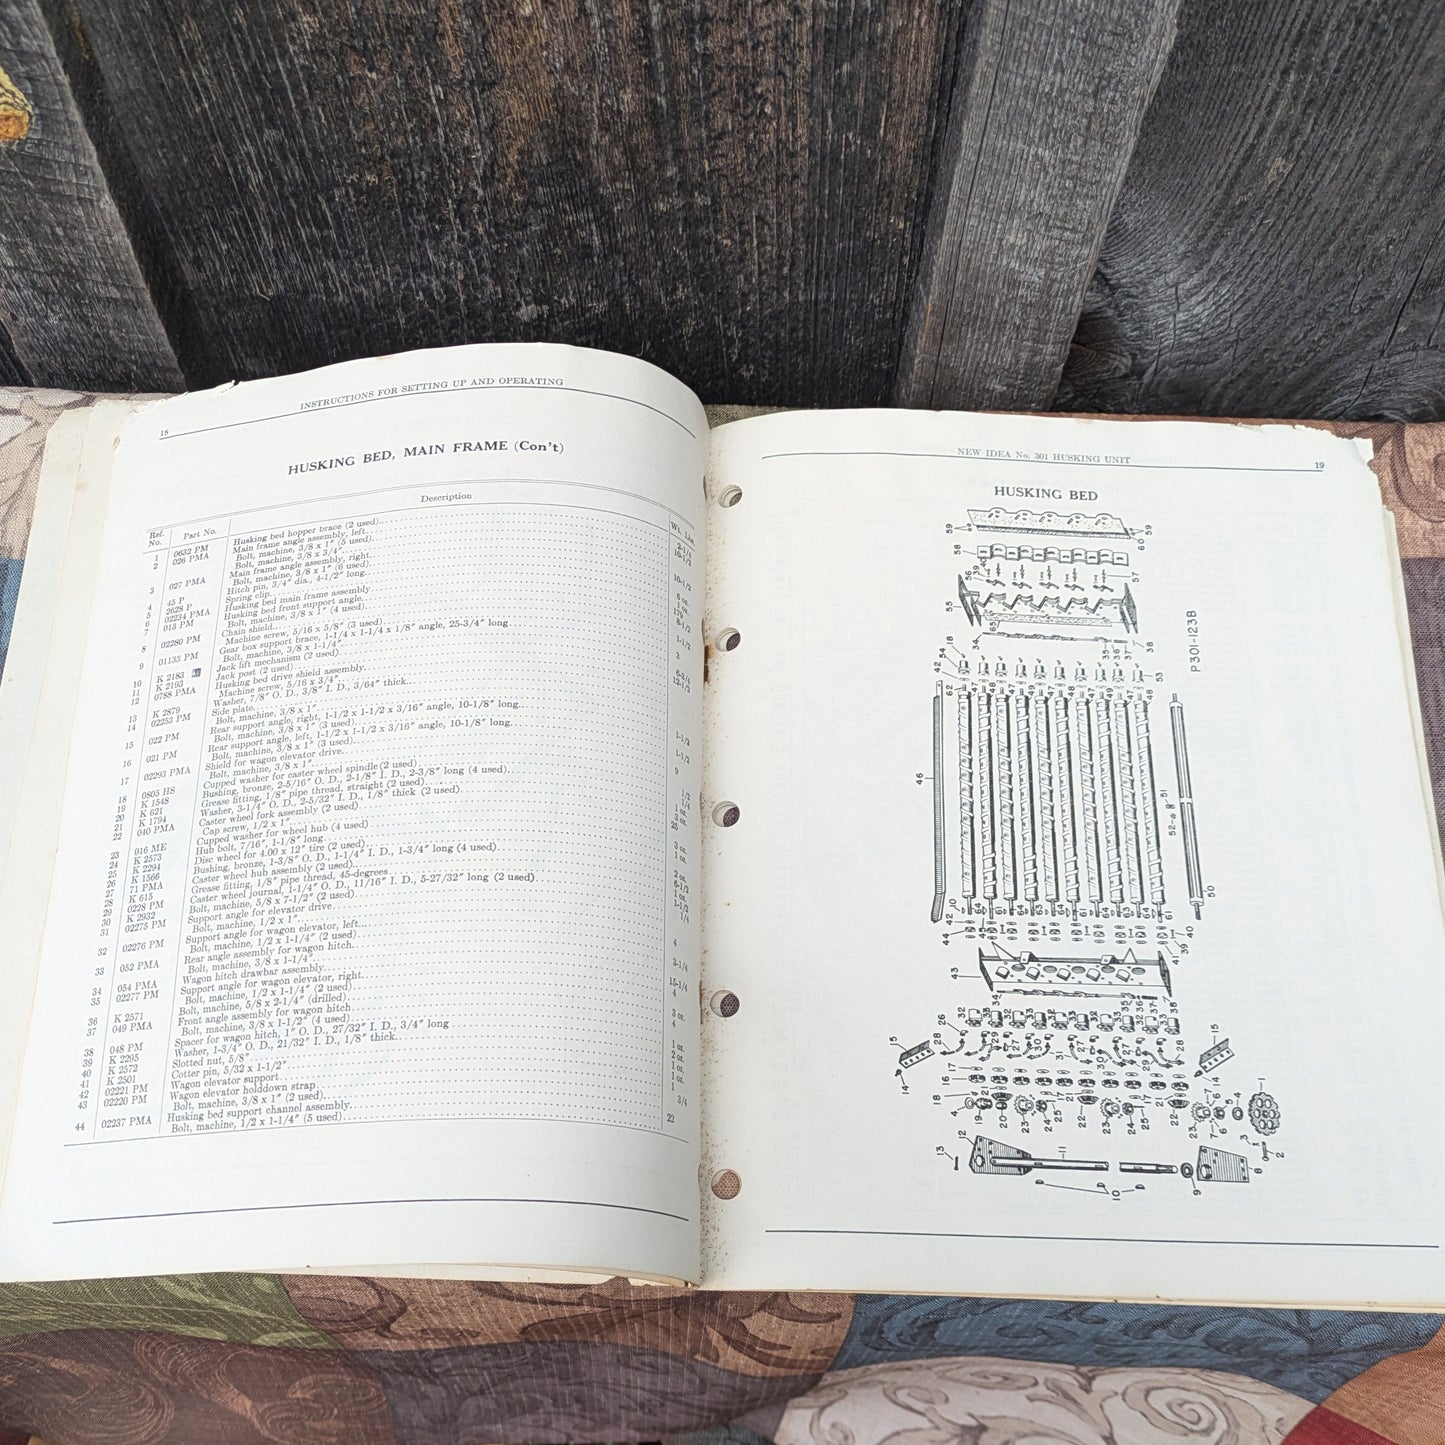 18
INSTRUCTIONS FOR SETTING UP AND OPERATING
HUSKING BED, MAIN FRAME (Con't)
Ref. No. Part No. Description Wt. Lbs.
1 0632 PM Husking bed hopper brace (2 used) 2-1/4
2 026 PMA Main frame angle assembly, left 10-1/2
Bolt, machine, 3/8 x 1" (5 used)
Bolt, machine, 3/8 x 3/4"
3 027 PMA Main frame angle assembly, right 10-1/2
Bolt, machine, 3/8 x 1" (6 used)
4 45 P Hitch pin, 3/4" dia., 4-1/2" long 6 oz.
5 2628 P Spring clip
6 02234 PMA Husking bed main frame assembly 179
7 013 PM Husking bed front support angle 8-1/2
Bolt, machine, 3/8 x 1" (4 used)
8 02280 PM Chain shield 1-1/2
Machine screw, 5/16 x 5/8" (3 used)
9 01133 PM Gear box support brace, 1-1/4 x 1-1/4 x 1/8" angle, 25-3/4" long 3
Bolt, machine, 3/8 x 1-1/4"
10 K 2183 Jack lift mechanism (2 used) 6-3/4
11 K 2193 Jack post (2 used) 12-1/2
12 0788 PMA Husking bed drive shield assembly
Machine screw, 5/16 x 3/4"
13 K 2879 Washer, 7/8" O. D., 3/8" I. D., 3/64" thick
14 02253 PM Side plate
Bolt, machine, 3/8 x 1"
15 022 PM Rear support angle, right, 1-1/2 x 1-1/2 x 3/16" angle, 10-1/8" long 1-1/2
Bolt, machine, 3/8 x 1" (3 used)
16 021 PM Rear support angle, left, 1-1/2 x 1-1/2 x 3/16" angle, 10-1/8" long 1-1/2
Bolt, machine, 3/8 x 1" (3 used)
17 02293 PMA Shield for wagon elevator drive 9
Bolt, machine, 3/8 x 1"
18 0805 HS Cupped washer for caster wheel spindle (2 used) 1/2
19 K 1548 Bushing, bronze, 2-5/16" O. D., 2-1/8" I. D., 2-3/8" long (4 used) 1/4
20 K 621 Grease fitting, 1/8" pipe thread, straight (2 used) 1 oz.
21 K 1794 Washer, 3-1/4" O. D., 2-5/32" I. D., 1/8" thick (2 used) 3 oz.
22 040 PMA Caster wheel fork assembly (2 used) 25
Cap screw, 1/2 x 1"
23 016 ME Cupped washer for wheel hub (4 used) 3 oz.
24 K 2573 Hub bolt, 7/16", 1-1/8" long 1 oz.
25 K 2294 Disc wheel for 4.00 x 12" tire (2 used)
26 K 1566 Bushing, bronze, 1-3/8" O. D., 1-1/4" I. D., 1-3/4" long (4 used) 2 oz.
27 71 PMA Caster wheel hub assembly (2 used) 6-1/2
28 K 615 Grease fitting, 1/8" pipe thread, 45-degrees 1 oz.
29 0228 PM Caster wheel journal, 1-1/4" O. D., 11/16" I. D., 5-27/32" long (2 used) 1-1/2
30 K 2932 Bolt, machine, 5/8 x 7-1/2" (2 used) 1/4
31 02275 PM Support angle for elevator drive
Bolt, machine, 1/2 x 1"
32 02276 PM Support angle for wagon elevator, left 4
Bolt, machine, 1/2 x 1-1/4" (2 used)
33 052 PMA Rear angle assembly for wagon hitch 3-1/4
Bolt, machine, 3/8 x 1-1/4"
34 054 PMA Wagon hitch drawbar assembly 15-1/4
35 02277 PM Support angle for wagon elevator, right 4
Bolt, machine, 1/2 x 1-1/4" (2 used)
36 K 2571 Bolt, machine, 5/8 x 2-1/4" (drilled) 3 oz.
37 049 PMA Front angle assembly for wagon hitch 4
Bolt, machine, 3/8 x 1-1/2" (4 used)
38 048 PM Spacer for wagon hitch, 1" O. D., 27/32" I. D., 3/4" long 1 oz.
39 K 2295 Washer, 1-3/4" O. D., 21/32" I. D., 1/8" thick 2 oz.
40 K 2572 Slotted nut, 5/8" 1 oz.
41 K 2501 Cotter pin, 5/32 x 1-1/2" 1 oz.
42 02221 PM Wagon elevator support 1
43 02220 PM Wagon elevator holddown strap 3/4
Bolt, machine, 3/8 x 1" (2 used)
44 02237 PMA Husking bed support channel assembly 22
Bolt, machine, 1/2 x 1-1/4" (5 used)
NEW IDEA No. 301 HUSKING UNIT
19
HUSKING BED
P301-123B